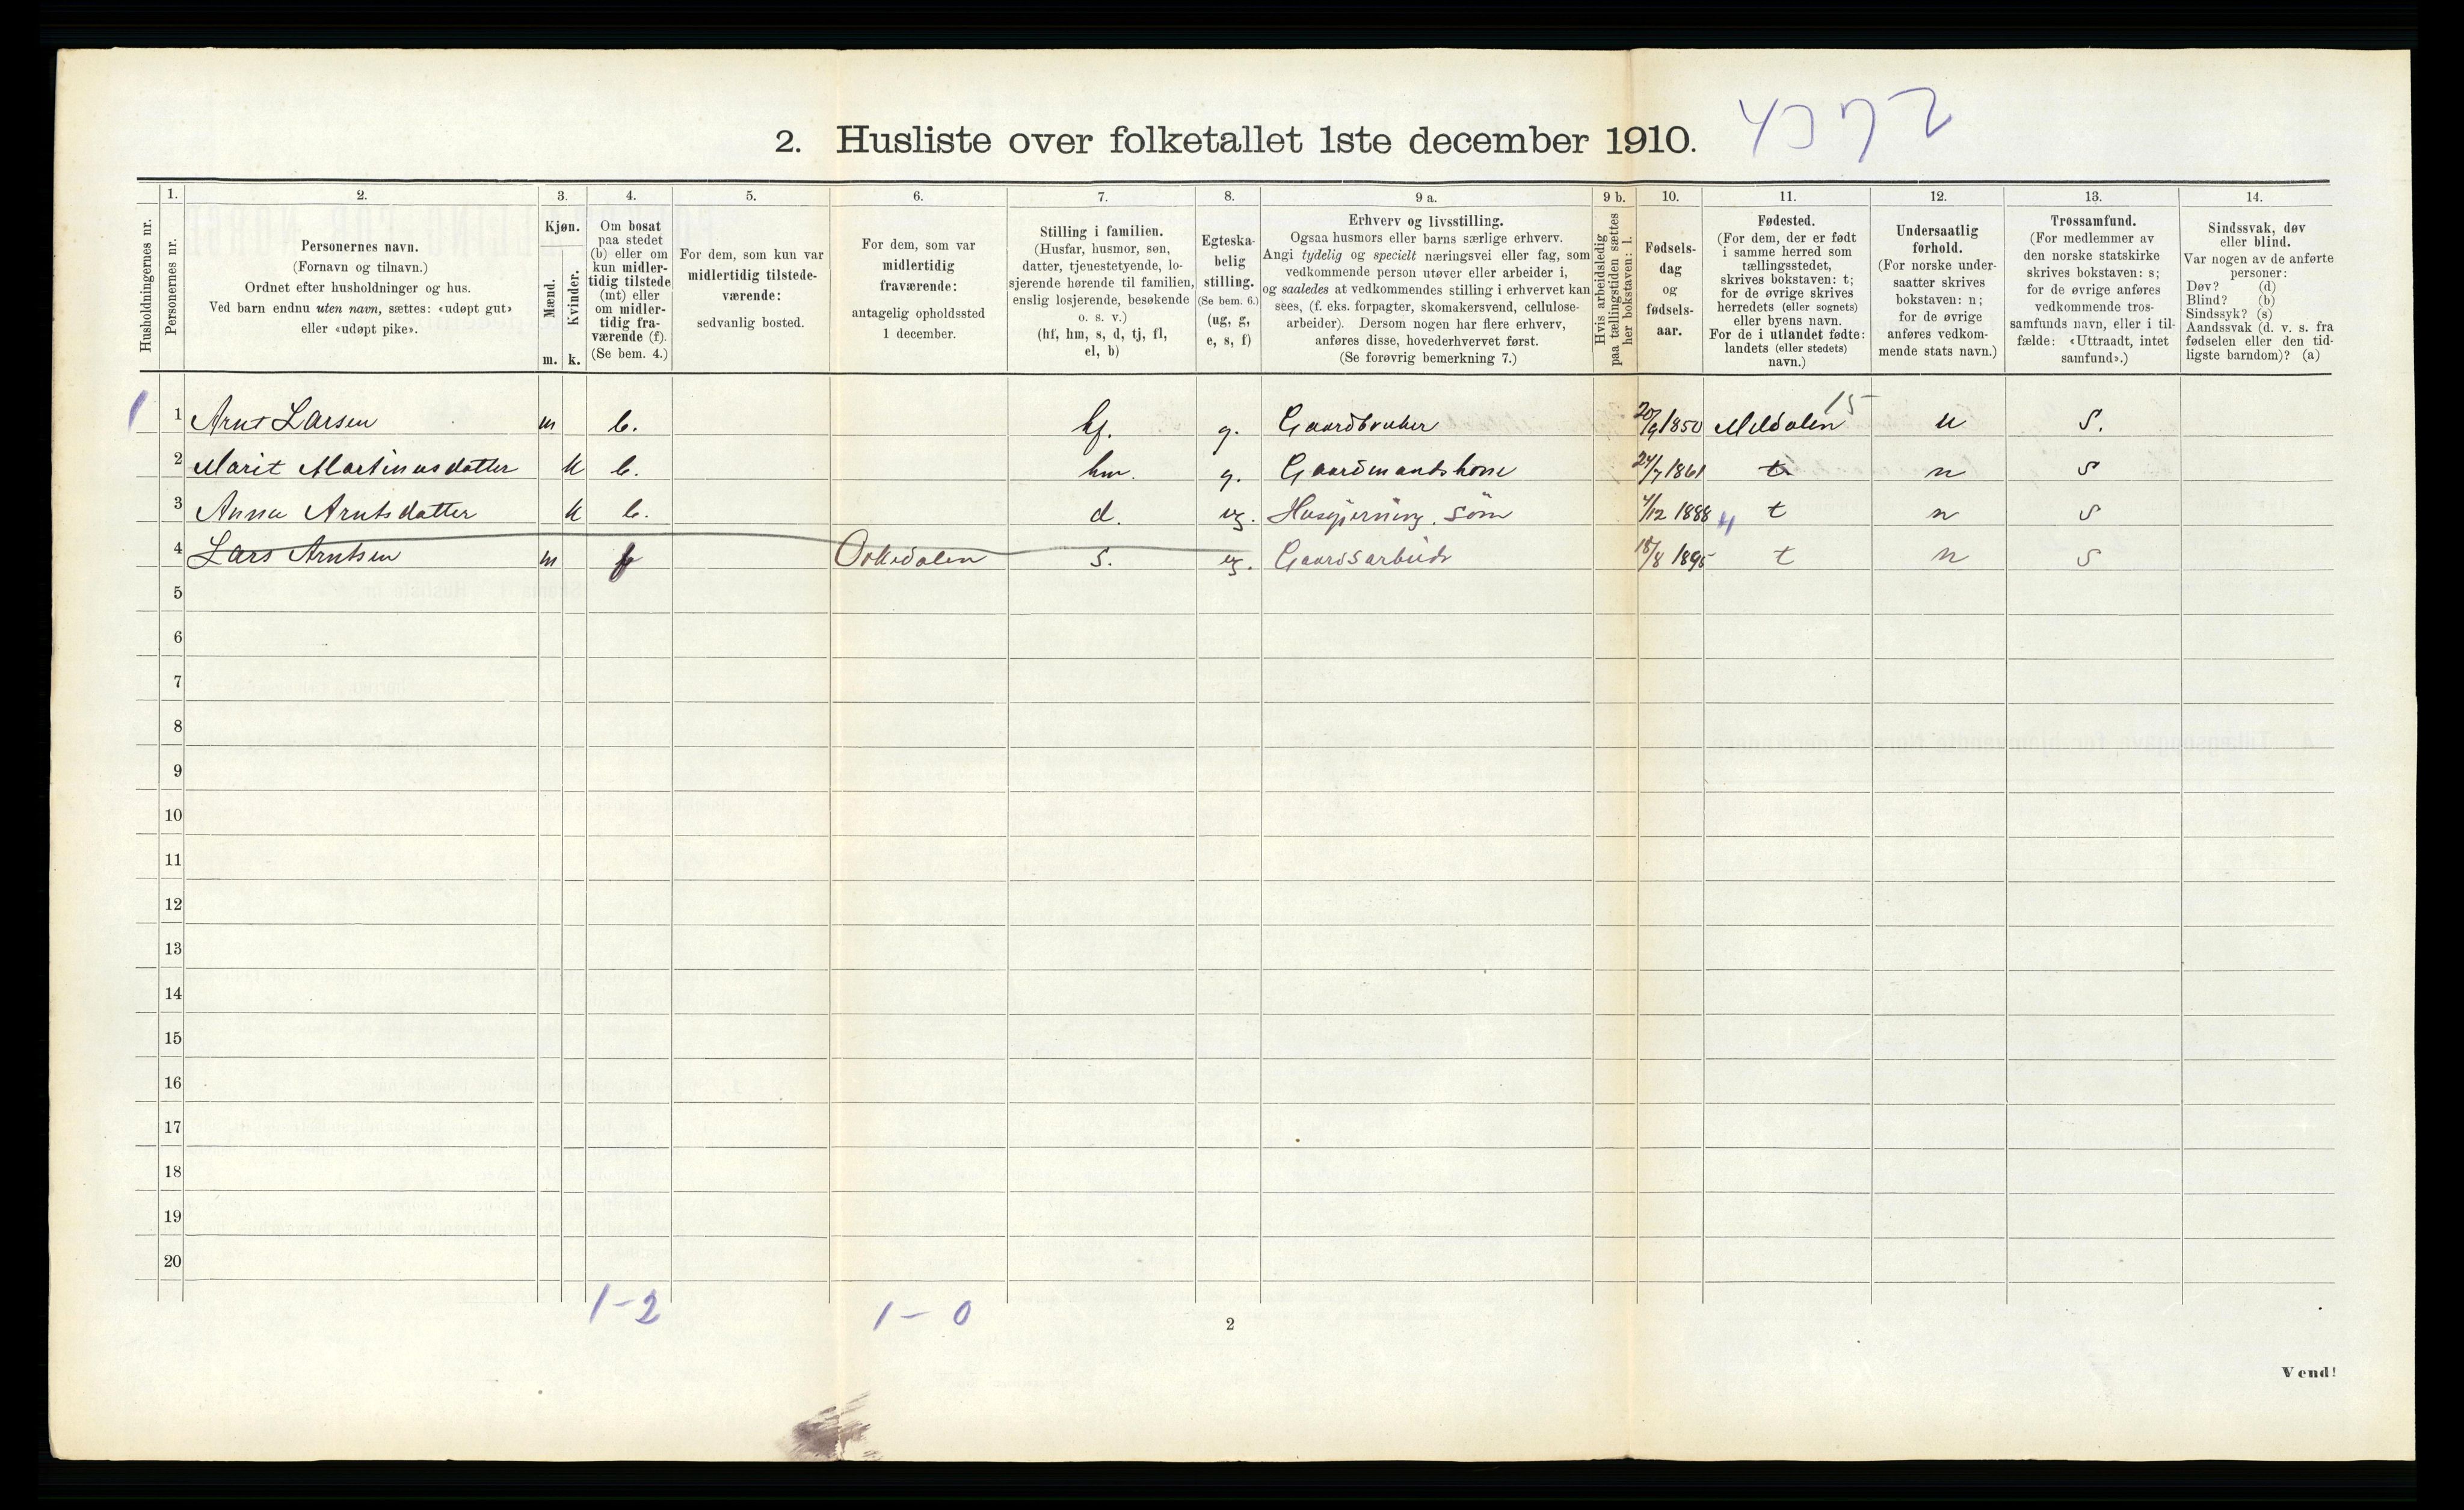 2. Husliste over folketallet 1ste december 1910.
1. 2. 3. 4. 5. 6. 7. 8. 9 a. 9 b. 10. 11. 12. 13. 14.
Husholdningernes nr.
Personernes nr.
Personernes navn.
(Fornavn og tilnavn.)
Ordnet efter husholdninger og hus.
Ved barn endnu uten navn, sættes: «udøpt gut»
eller «udøpt pike».
Kjøn.
Mænd.
Kvinder.
m. k.
Om bosat
paa stedet
(b) eller om
kun midler-
tidig tilstede
(mt) eller
om midler-
tidig fra-
værende (f).
(Se bem. 4.)
For dem, som kun var
midlertidig tilstede-
værende:
sedvanlig bosted.
For dem, som var
midlertidig
fraværende:
antagelig opholdssted
1 december.
Stilling i familien.
(Husfar, husmor, søn,
datter, tjenestetyende, lo-
sjerende hørende til familien,
enslig losjerende, besøkende
o. s. v.)
(hf, hm, s, d, tj, fl,
el, b)
Egteska-
belig
stilling.
(Se bem. 6.)
(ug, g,
e, s, f)
Erhverv og livsstilling.
Ogsaa husmors eller barns særlige erhverv.
Angi tydelig og specielt næringsvei eller fag, som
vedkommende person utøver eller arbeider i,
og saaledes at vedkommendes stilling i erhvervet kan
sees, (f. eks. forpagter, skomakersvend, cellulose-
arbeider). Dersom nogen har flere erhverv,
anføres disse, hovederhvervet først.
(Se forøvrig bemerkning 7.)
Hvis arbeidsledig
paa tællingstiden sættes
her bokstaven: l.
Fødsels-
dag
og
fødsels-
aar.
Fødested.
(For dem, der er født
i samme herred som
tællingsstedet,
skrives bokstaven: t;
for de øvrige skrives
herredets (eller sognets)
eller byens navn.
For de i utlandet fødte:
landets (eller stedets)
navn.)
Undersaatlig
forhold.
(For norske under-
saatter skrives
bokstaven: n;
for de øvrige
anføres vedkom-
mende stats navn.)
Trossamfund.
(For medlemmer av
den norske statskirke
skrives bokstaven: s;
for de øvrige anføres
vedkommende tros-
samfunds navn, eller i til-
fælde: «Uttraadt, intet
samfund».)
Sindssvak, døv
eller blind.
Var nogen av de anførte
personer:
Døv? (d)
Blind? (b)
Sindssyk? (s)
Aandssvak (d. v. s. fra
fødselen eller den tid-
ligste barndom)? (a)
15
1 1 Arnt Larsen m b. hf. g. Gaardbruker 20/9 1850 Meldalen n s.
2 Marit Martinusdatter k b. hm. g. Gaardmandskone 24/7 1861 t n s
3 Anna Arntsdatter k b. d. ug. Husgjerning. Søm 4/12 1888 t n s
4 Lars Arntsen m f Orkedalen s. ug. Gaardsarbeide 18/8 1895 t n s
5
6
7
8
9
10
11
12
13
14
15
16
17
18
19
20
1-2 1-0
2
Vend!